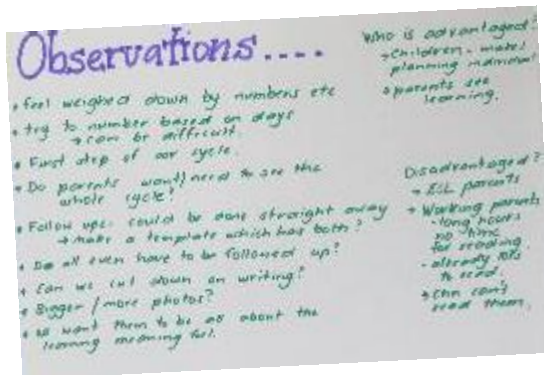 Observations....
• feel weighed down by numbers etc
• try to number based on days
→ can be difficult.
• First step of our cycle.
• Do parents want/need to see the
whole cycle?
• Follow ups: could be done straight away
→ make a template which has both?
• Do all even have to be followed up?
• Can we cut down on writing?
• Bigger / more photos?
• we want them to be all about the
learning meaning ful.
Who is advantaged?
→ children - makes
planning individual
→ parents see
learning.
Disadvantaged?
→ EAL parents
→ Working parents
- long hours
no time
for reading
- already
to read.
→ Chn can't
read them.